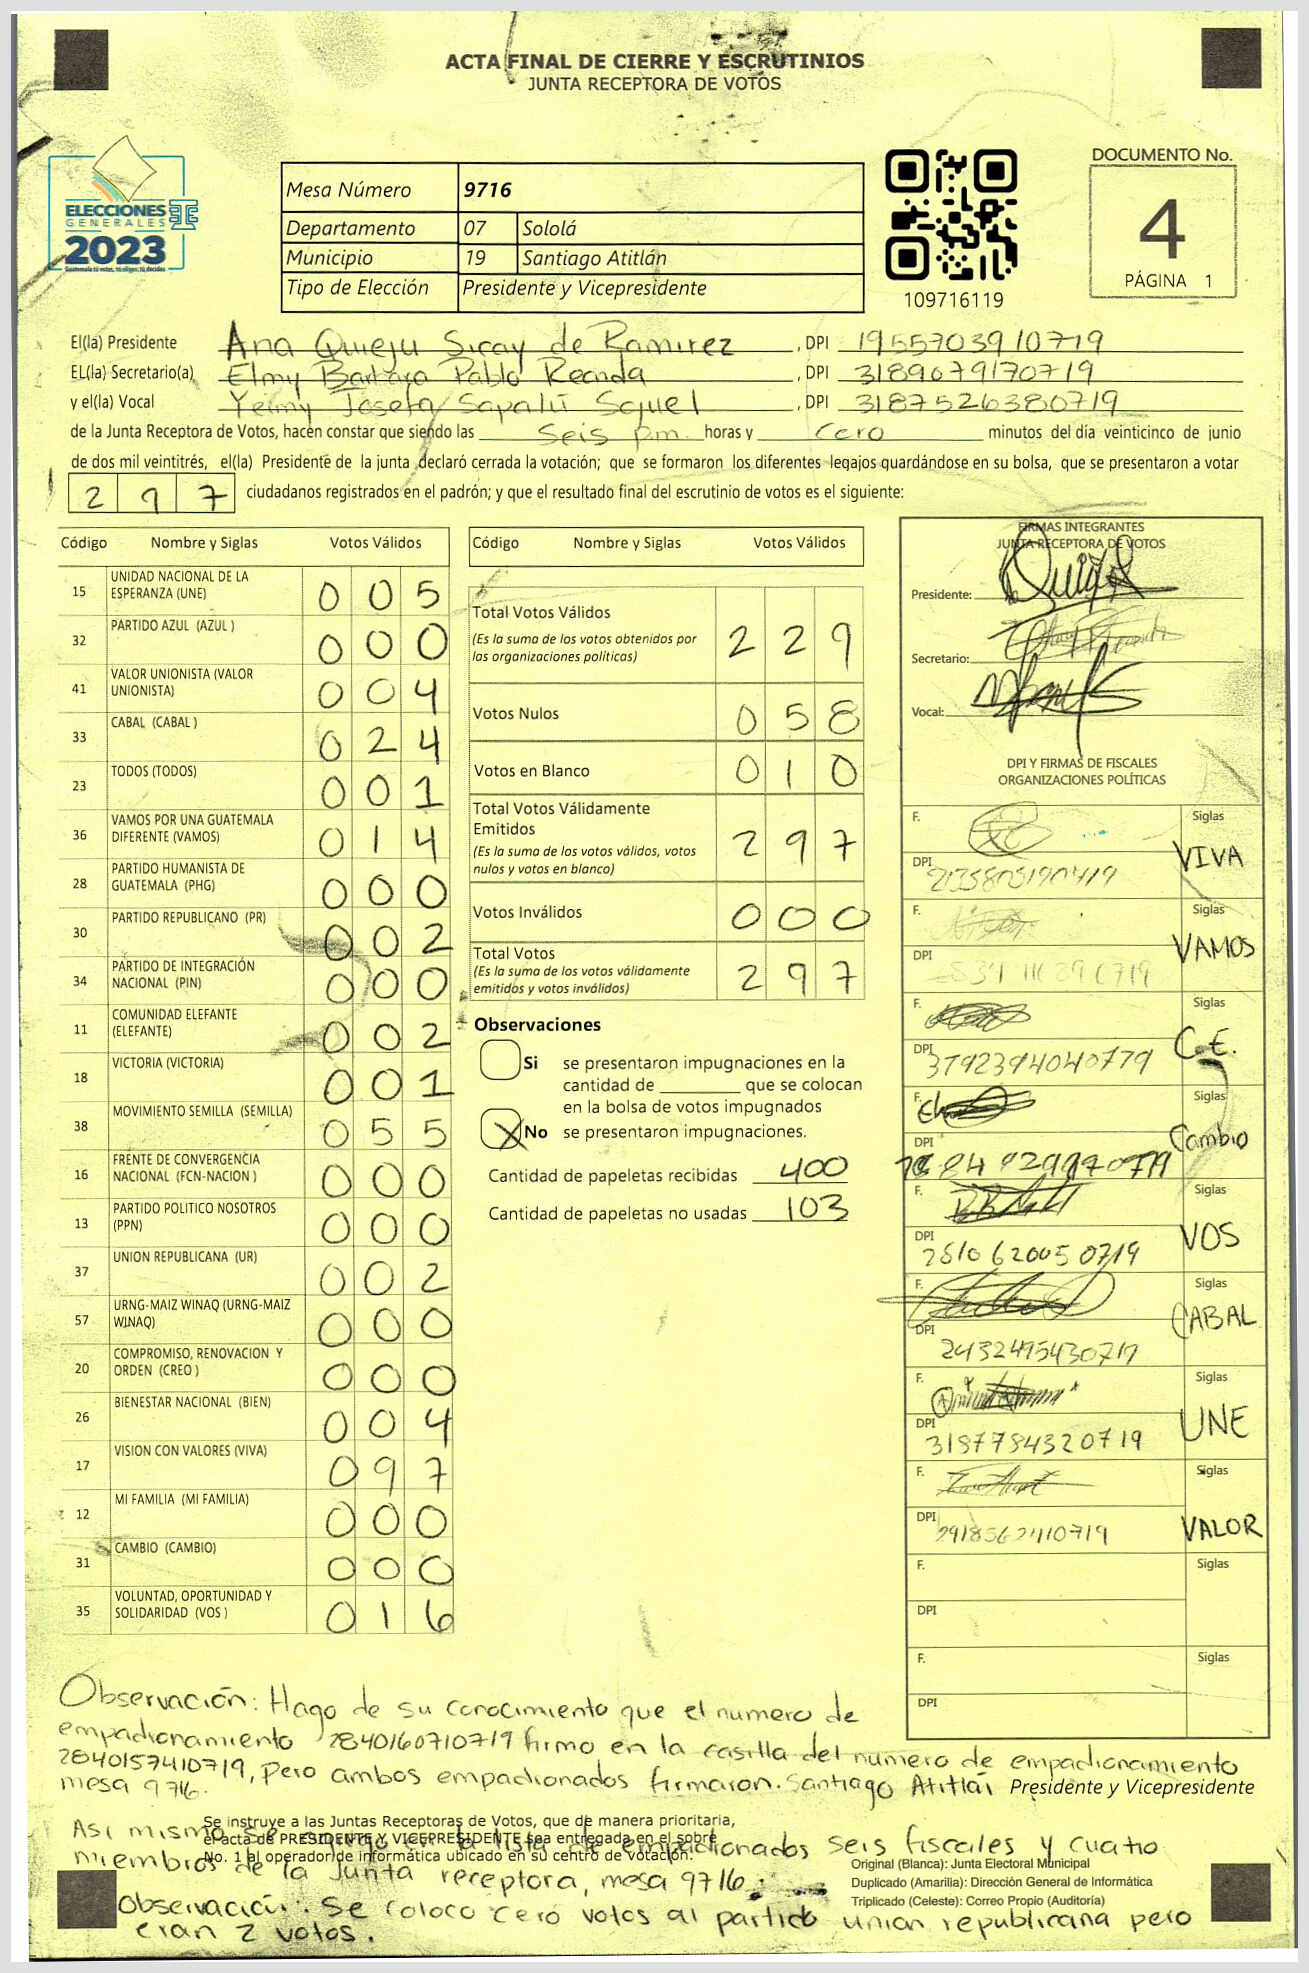 ACTA FINAL DE CIERRE Y ESCRUTINIOS
JUNTA RECEPTORA DE VOTOS
ELECCIONES
GENERALES
2023
Mesa Número 9716
Departamento 07 Sololá
Municipio 19 Santiago Atitlán
Tipo de Elección Presidente y Vicepresidente
109716119
DOCUMENTO No.
4
PÁGINA 1
El(la) Presidente Ana Quieju Sicay de Ramirez , DPI 1955703910719
EL(la) Secretario(a) Elmy Barbara Pablo Reanda , DPI 3189679170719
y el(la) Vocal Yeimy Josefa Sapalú Sojuel , DPI 3187526380719
de la Junta Receptora de Votos, hacen constar que siendo las Seis p.m. horas y cero minutos del día veinticinco de junio
de dos mil veintitrés, el(la) Presidente de la junta declaró cerrada la votación; que se formaron los diferentes legajos guardándose en su bolsa, que se presentaron a votar
297 ciudadanos registrados en el padrón; y que el resultado final del escrutinio de votos es el siguiente:
Código Nombre y Siglas Votos Válidos
15 UNIDAD NACIONAL DE LA ESPERANZA (UNE) 005
32 PARTIDO AZUL (AZUL ) 000
41 VALOR UNIONISTA (VALOR UNIONISTA) 004
33 CABAL (CABAL ) 024
23 TODOS (TODOS) 001
36 VAMOS POR UNA GUATEMALA DIFERENTE (VAMOS) 014
28 PARTIDO HUMANISTA DE GUATEMALA (PHG) 000
30 PARTIDO REPUBLICANO (PR) 002
34 PARTIDO DE INTEGRACIÓN NACIONAL (PIN) 000
11 COMUNIDAD ELEFANTE (ELEFANTE) 002
18 VICTORIA (VICTORIA) 001
38 MOVIMIENTO SEMILLA (SEMILLA) 055
16 FRENTE DE CONVERGENCIA NACIONAL (FCN-NACION ) 000
13 PARTIDO POLITICO NOSOTROS (PPN) 000
37 UNION REPUBLICANA (UR) 002
57 URNG-MAIZ WINAQ (URNG-MAIZ WINAQ) 000
20 COMPROMISO, RENOVACION Y ORDEN (CREO ) 000
26 BIENESTAR NACIONAL (BIEN) 004
17 VISION CON VALORES (VIVA) 097
12 MI FAMILIA (MI FAMILIA) 000
31 CAMBIO (CAMBIO) 000
35 VOLUNTAD, OPORTUNIDAD Y SOLIDARIDAD (VOS ) 016
Código Nombre y Siglas Votos Válidos
Total Votos Válidos 229
(Es la suma de los votos obtenidos por
las organizaciones políticas)
Votos Nulos 058
Votos en Blanco 010
Total Votos Válidamente
Emitidos 297
(Es la suma de los votos válidos, votos
nulos y votos en blanco)
Votos Inválidos 000
Total Votos 297
(Es la suma de los votos válidamente
emitidos y votos inválidos)
Observaciones
Si se presentaron impugnaciones en la
cantidad de ________ que se colocan
en la bolsa de votos impugnados
X No se presentaron impugnaciones.
Cantidad de papeletas recibidas 400
Cantidad de papeletas no usadas 103
FIRMAS INTEGRANTES
JUNTA RECEPTORA DE VOTOS
Presidente:
Secretario:
Vocal:
DPI Y FIRMAS DE FISCALES
ORGANIZACIONES POLÍTICAS
F. Siglas
DPI VIVA
F. Siglas
DPI VAMOS
F. Siglas
DPI 3792394040779 C.E.
F. Siglas
DPI Cambio
F. Siglas
DPI 2510620050719 VOS
F. Siglas
DPI 2432495430719 CABAL
F. Siglas
DPI 3187784320719 UNE
F. Siglas
DPI 2918562410719 VALOR
F. Siglas
DPI
F. Siglas
DPI
Observación: Hago de su conocimiento que el numero de
empadronamiento 2840160710719 firmo en la casilla del numero de empadronamiento
2840157410719, Pero ambos empadronados firmaron. Santiago Atitlán
mesa 9716.
Presidente y Vicepresidente
Se instruye a las Juntas Receptoras de Votos, que de manera prioritaria,
el acta de PRESIDENTE Y VICEPRESIDENTE sea entregada en el sobre
No. 1 al operador de informática ubicado en su centro de votación.
Así mismo lista de empadronados seis fiscales y cuatro
miembros de la Junta receptora, mesa 9716.
Original (Blanca): Junta Electoral Municipal
Duplicado (Amarilla): Dirección General de Informática
Triplicado (Celeste): Correo Propio (Auditoría)
Observación: Se coloco cero votos al partido union republicana pero
eran 2 votos.